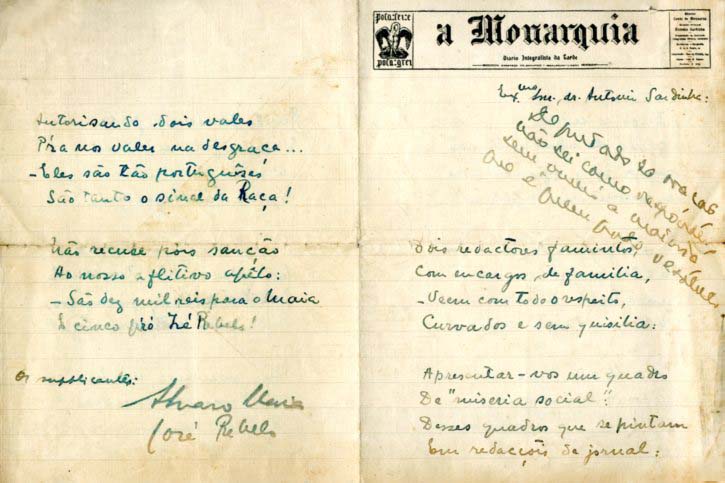 pola:lei:e
pola:grei
a Monarquia
Diario Integralista da Tarde
Director
Conde de Monsaraz
Exmo Snr. dr. Antonio Sardinha:
Deputado
não sei como
sem ouvir a maioria
que é quem
Dois redactores famintos,
Com encargos de familia,
-Veem com todo o respeito,
Curvados e sem quisilia:
Apresentar-vos um quadro
De "miseria social":
Desses quadros que se pintam
Em redacções de jornal:
Autorisando dois vales
P'ra nos valer na desgraça...
-Eles são tão portuguêses
São tanto o sinal da Raça!
Não recuse pois sanção
Ao nosso aflitivo apêlo:
-São dez mil reis para o Maia
E cinco pró Zé Rebelo!
Os supplicantes:
Alvaro Maia
José Rebelo